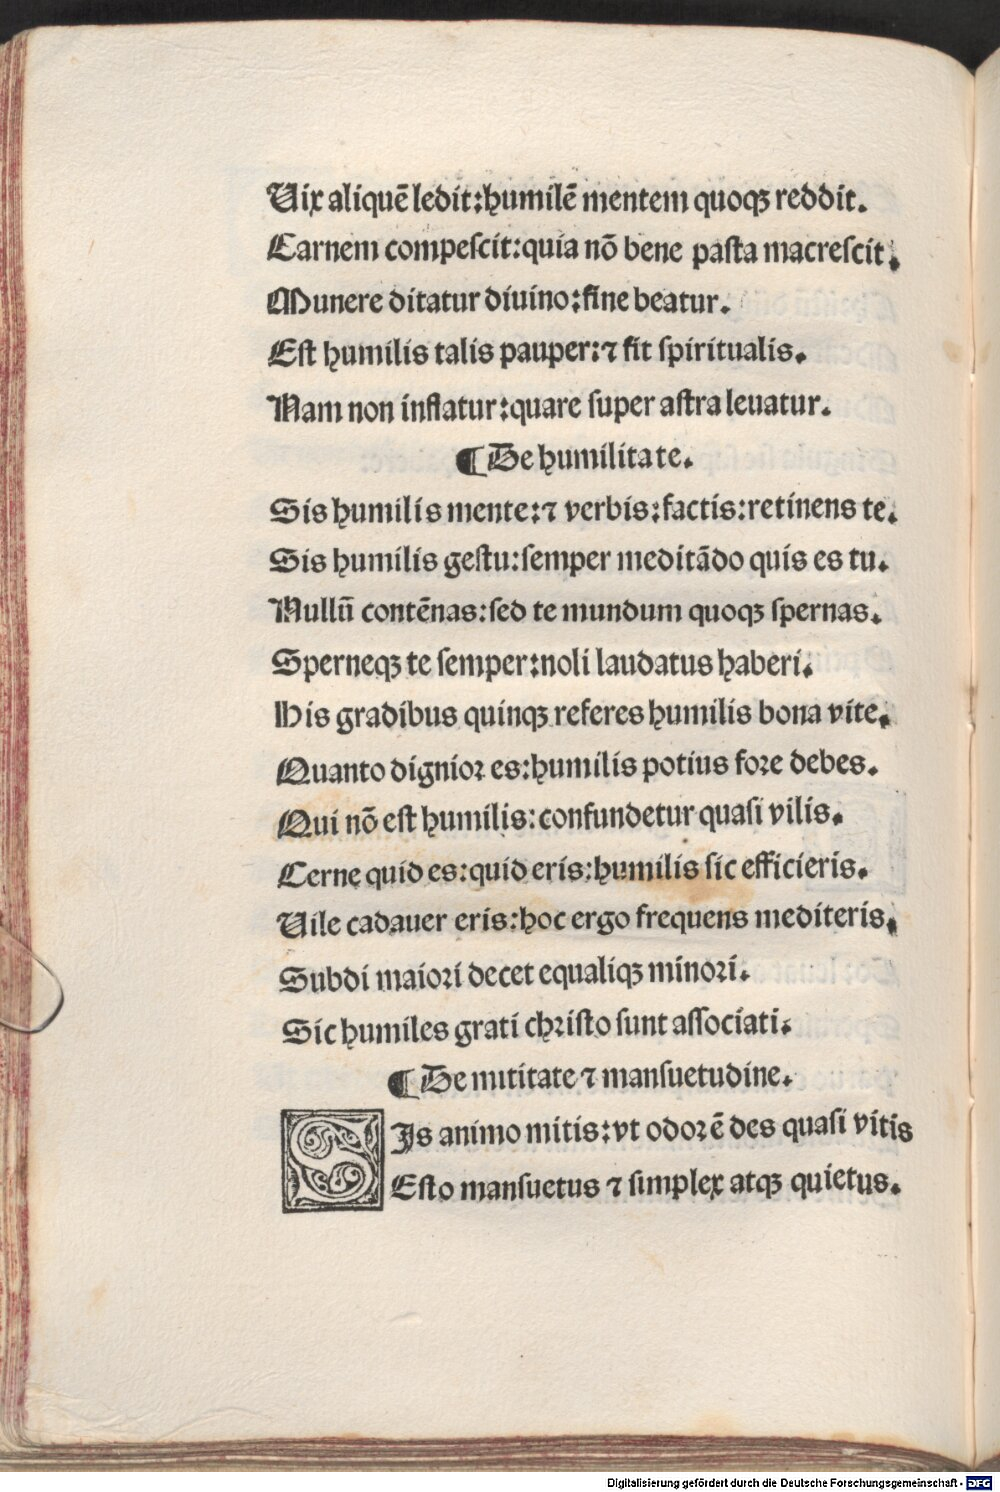 Uix aliquē ledit:humilē mentem quoqꝫ reddit.
Carnem compeſcit:quia nō bene paſta macreſcit.
Munere ditatur diuino:fine beatur.
Eſt humilis talis pauper:⁊ fit ſpiritualis.
Nam non inflatur:quare ſuper aſtra leuatur.
¶ De humilitate.
Sis humilis mente:⁊ verbis:factis:retinens te.
Sis humilis geſtu:ſemper meditādo quis es tu.
Nullū contēnas:ſed te mundum quoqꝫ ſpernas.
Sperneqꝫ te ſemper:noli laudatus haberi.
His gradibus quinqꝫ referes humilis bona vite.
Quanto dignioꝛ es:humilis potius foꝛe debes.
Qui nō eſt humilis:confundetur quaſi vilis.
Cerne quid es:quid eris:humilis ſic efficieris.
Uile cadauer eris:hoc ergo frequens mediteris.
Subdi maioꝛi decet equaliqꝫ minoꝛi.
Sic humiles grati chꝛiſto ſunt aſſociati.
¶ De mititate ⁊ manſuetudine.
SIs animo mitis:vt odoꝛē des quaſi vitis
Eſto manſuetus ⁊ ſimplex atqꝫ quietus.
Digitalisierung gefördert durch die Deutsche Forschungsgemeinschaft - DFG